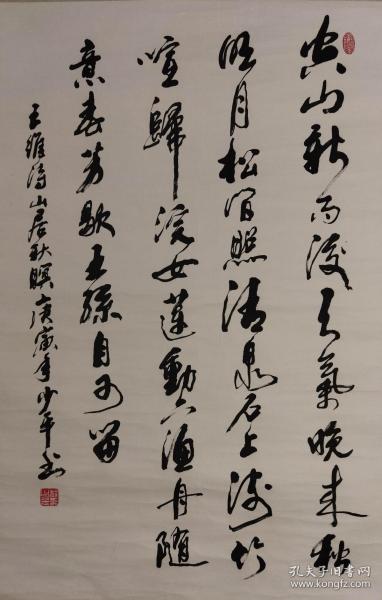 空山新雨後天氣晚来秋
明月松间照清泉石上流竹
喧歸浣女蓮動下漁舟随
意春芳歇王孫自可留
王維詩山居秋暝庚寅年少平书
孔夫子旧书网
www.kongfz.com